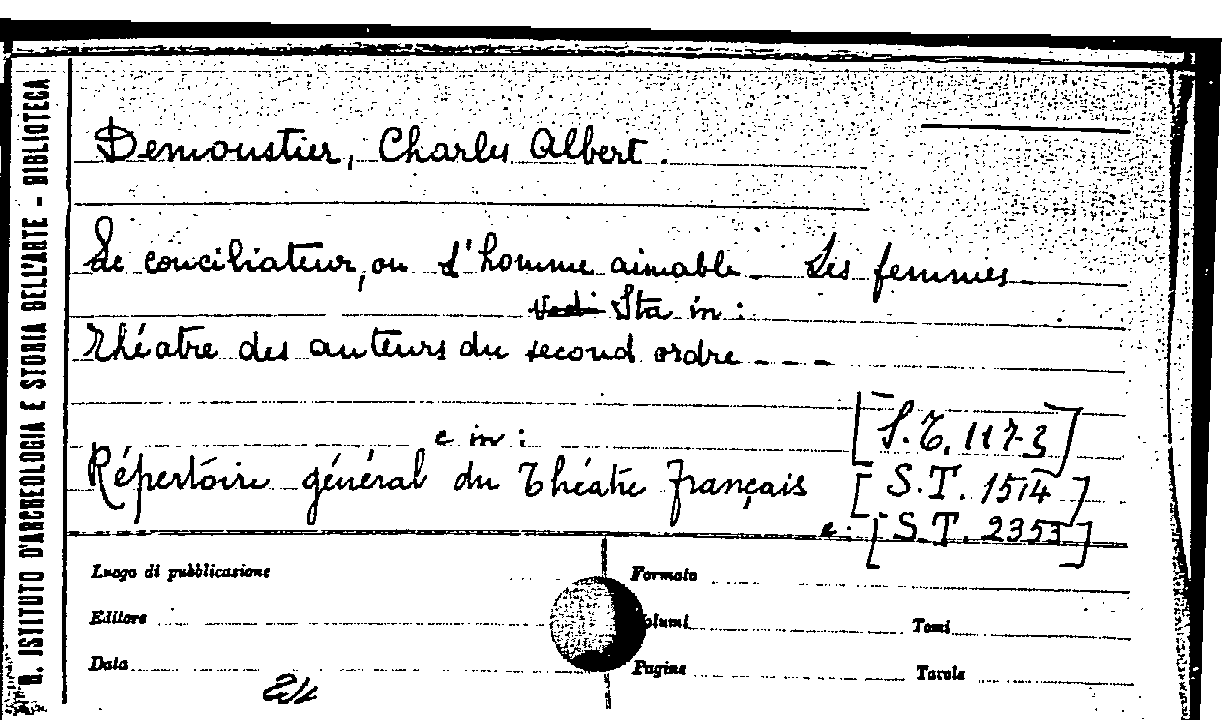 R. ISTITUTO D'ARCHEOLOGIA E STORIA DELL'ARTE - BIBLIOTECA
Demoustier, Charles Albert.
Le conciliateur, ou l'homme aimable - Les femmes
Sta in:
Théatre des auteurs du second ordre - - -
e in:
[S.T. 117-3]
Répertoire général du Théatre français [S.T. 1514]
e: [S.T. 2353]
Luogo di pubblicazione
Formato
Editore
Volumi
Tomi
Data
Pagine
Tavole